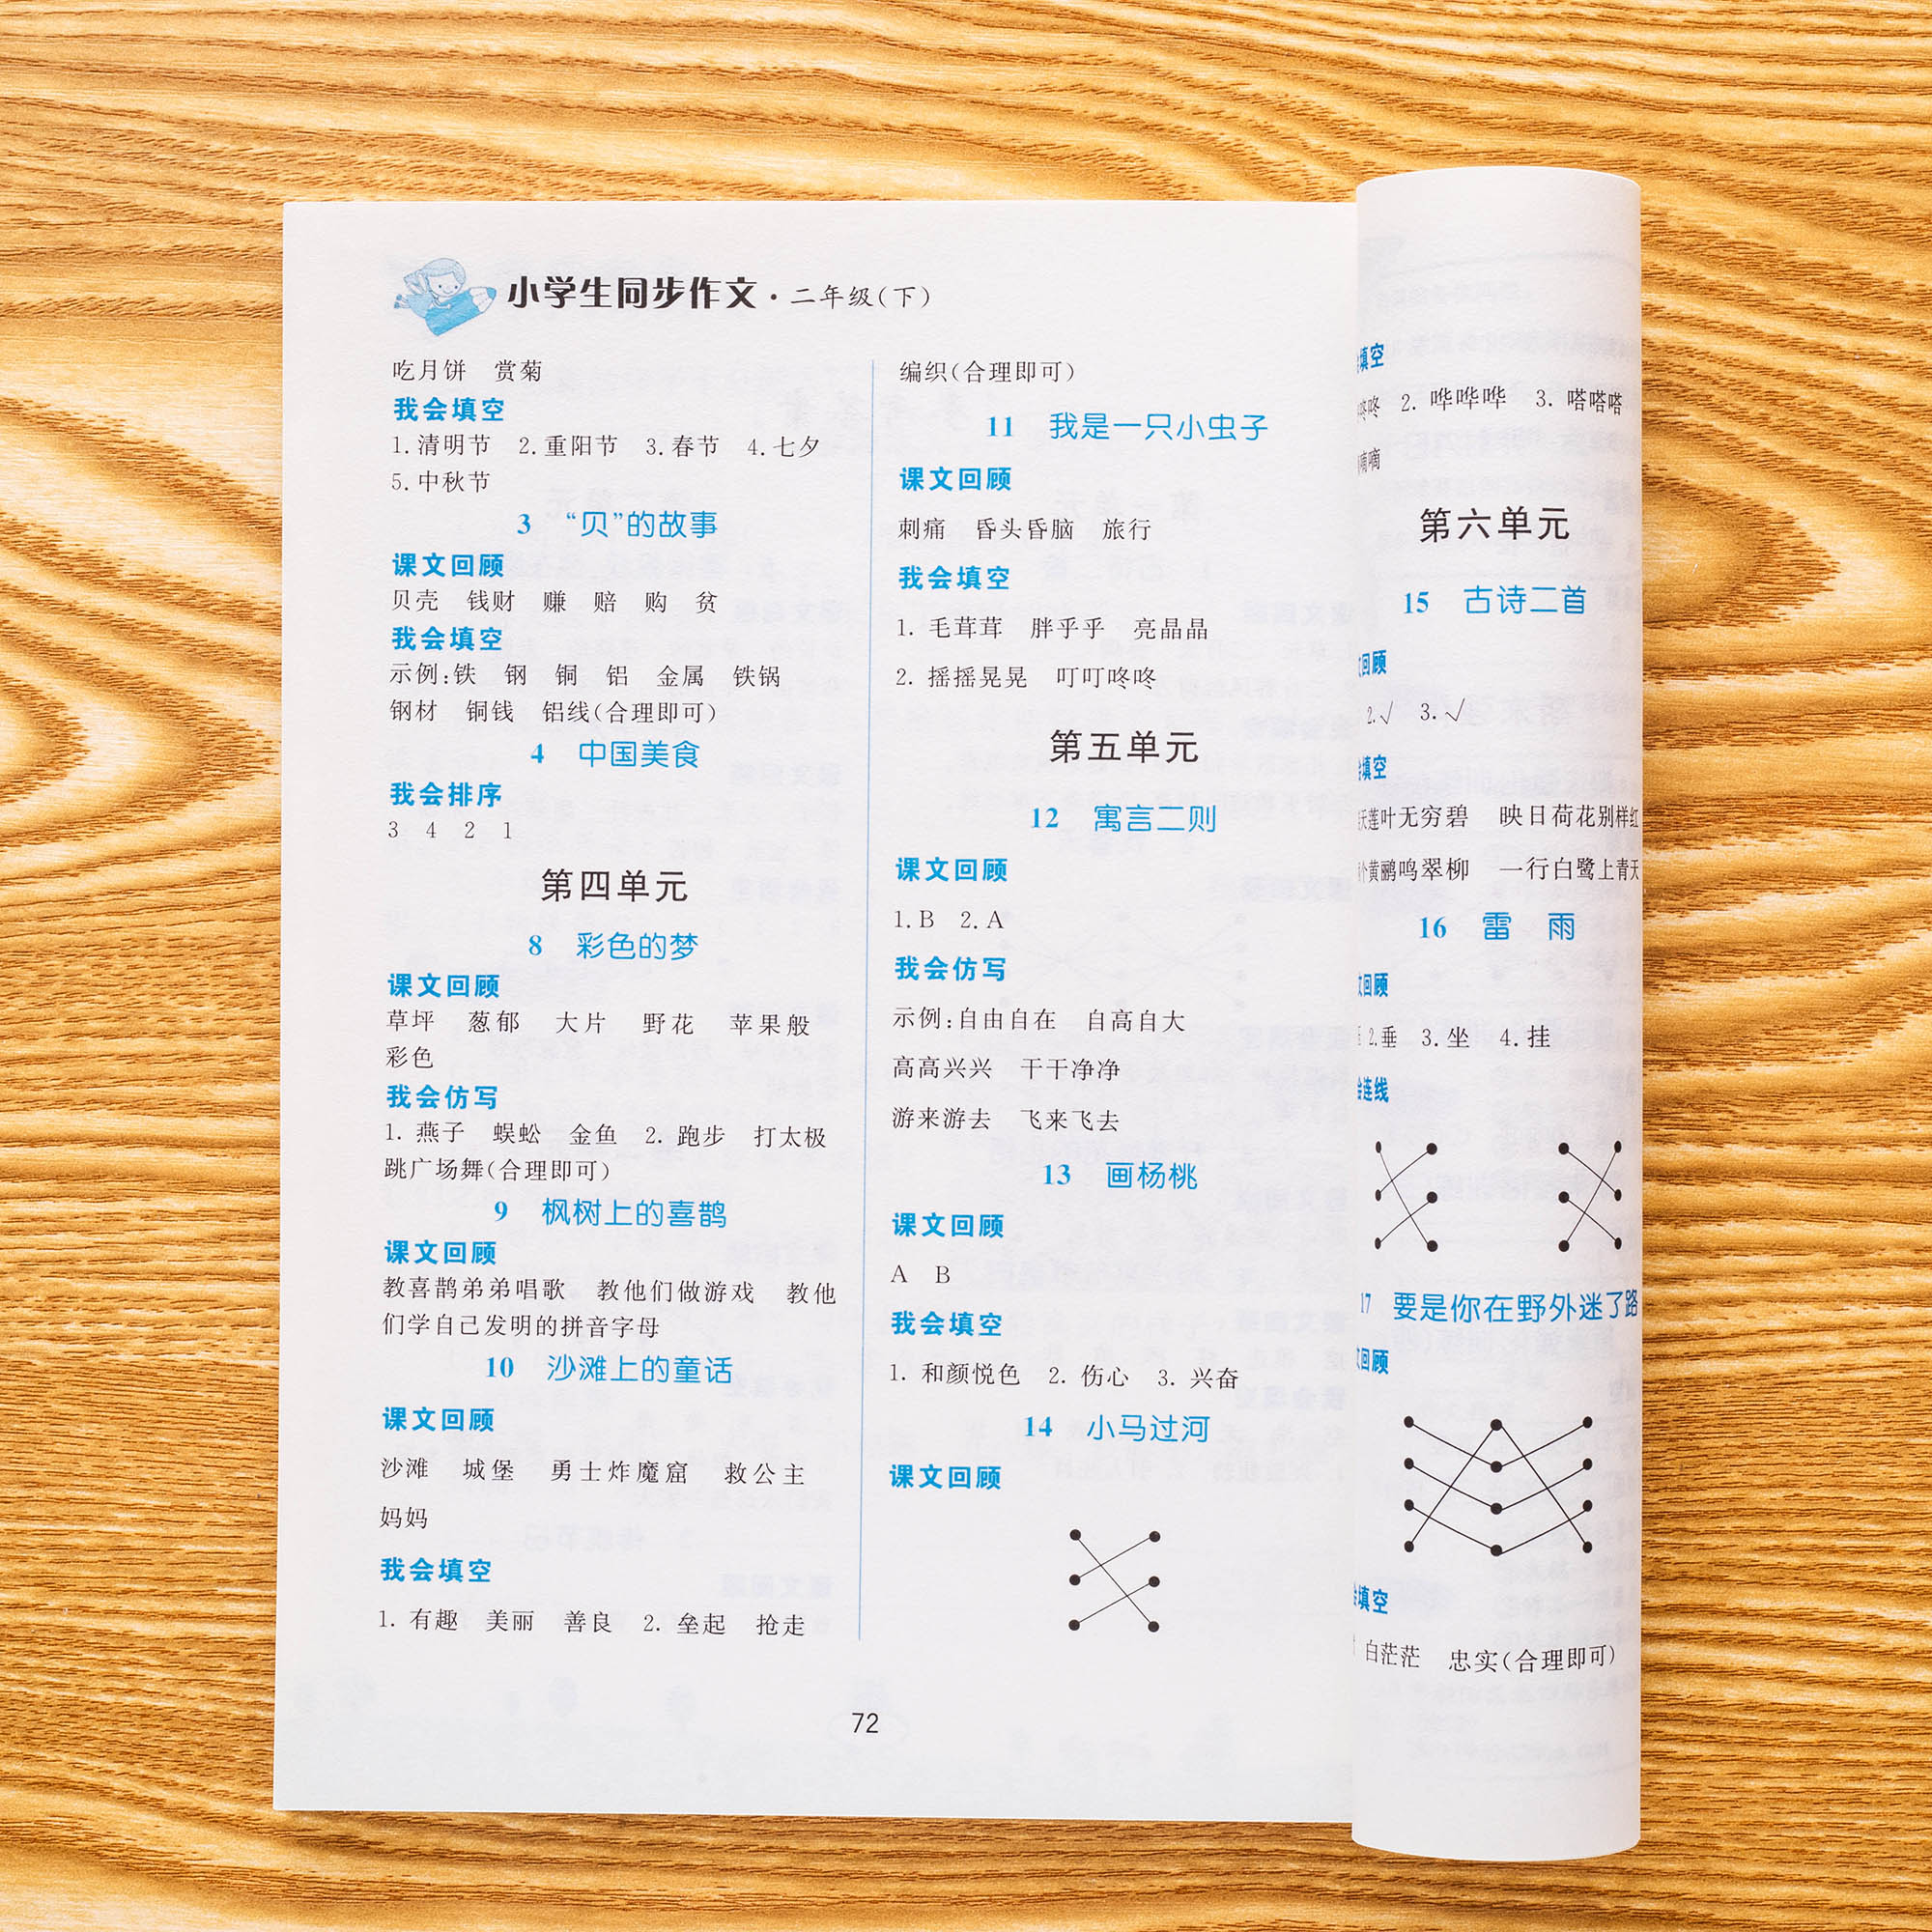 小学生同步作文·二年级(下)
吃月饼 赏菊
我会填空
1.清明节 2.重阳节 3.春节 4.七夕
5.中秋节
3 “贝”的故事
课文回顾
贝壳 钱财 赚 赔 购 贫
我会填空
示例:铁 钢 铜 铝 金属 铁锅
钢材 铜钱 铝线(合理即可)
4 中国美食
我会排序
3 4 2 1
第四单元
8 彩色的梦
课文回顾
草坪 葱郁 大片 野花 苹果般
彩色
我会仿写
1. 燕子 蜈蚣 金鱼 2. 跑步 打太极
跳广场舞(合理即可)
9 枫树上的喜鹊
课文回顾
教喜鹊弟弟唱歌 教他们做游戏 教他
们学自己发明的拼音字母
10 沙滩上的童话
课文回顾
沙滩 城堡 勇士炸魔窟 救公主
妈妈
我会填空
1. 有趣 美丽 善良 2. 垒起 抢走
编织(合理即可)
11 我是一只小虫子
课文回顾
刺痛 昏头昏脑 旅行
我会填空
1. 毛茸茸 胖乎乎 亮晶晶
2. 摇摇晃晃 叮叮咚咚
第五单元
12 寓言二则
课文回顾
1.B 2.A
我会仿写
示例:自由自在 自高自大
高高兴兴 干干净净
游来游去 飞来飞去
13 画杨桃
课文回顾
A B
我会填空
1. 和颜悦色 2. 伤心 3. 兴奋
14 小马过河
课文回顾
72
填空
咚咚 2. 哗哗哗 3. 嗒嗒嗒
嘀嘀
第六单元
15 古诗二首
回顾
2.√ 3.√
填空
天莲叶无穷碧 映日荷花别样红
个黄鹂鸣翠柳 一行白鹭上青天
16 雷 雨
文回顾
2.垂 3.坐 4.挂
会连线
17 要是你在野外迷了路
回顾
填空
白茫茫 忠实(合理即可)